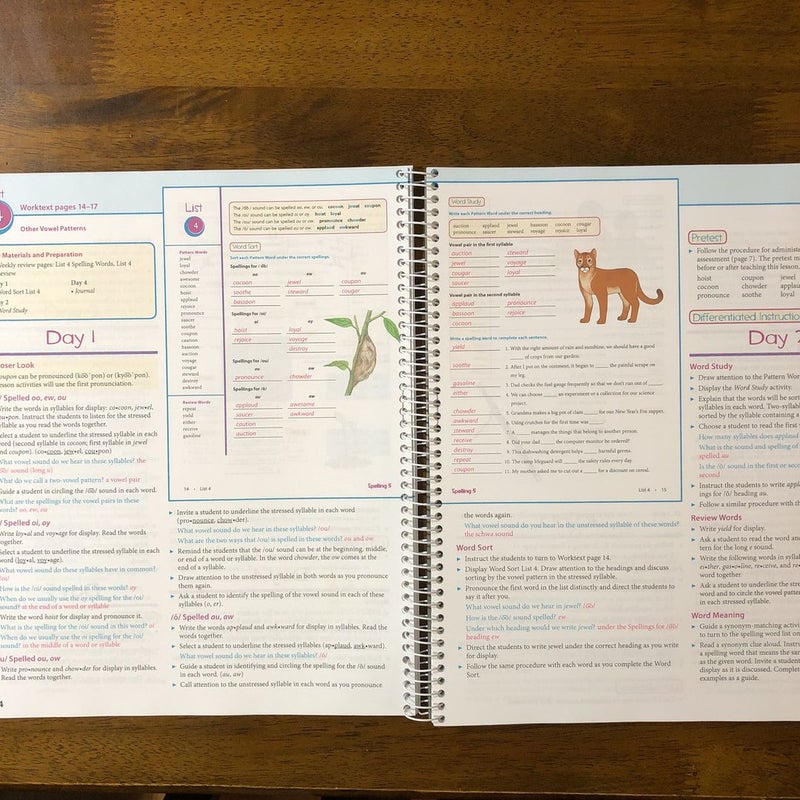 Worktext pages 14–17
Other Vowel Patterns
Materials and Preparation
Weekly review pages: List 4 Spelling Words, List 4
Word Sort List 4
Day 4
• Journal
Word Study
Day 1
Closer Look
coupon can be pronounced
lesson activities will use the first pronunciation.
Spelled oo, ew, ou
Write the words in syllables for display: co•coon, jew•el,
cou•pon. Instruct the students to listen for the stressed
syllable as you read the words together.
Select a student to underline the stressed syllable in each
word (second syllable in cocoon; first syllable in jewel
and coupon). (co•coon, jew•el, cou•pon)
What vowel sound do we hear in these syllables? the
What do we call a two-vowel pattern? a vowel pair
Guide a student in circling the /o͞o/ sound in each word.
What are the spellings for the vowel pairs in these
words? oo, ew, ou
Spelled oi, oy
Write loy•al and voy•age for display. Read the words
together.
Select a student to underline the stressed syllable in each
word (loy•al, voy•age).
What vowel sound do these syllables have in common?
How is the /oi/ sound spelled in these words? oy
When do we usually use the oy spelling for the /oi/
sound? at the end of a word or syllable
Write the word hoist for display and pronounce it.
What is the spelling for the /oi/ sound in this word? oi
When do we usually use the oi spelling for the /oi/
sound? in the middle of a word or syllable
Spelled ou, ow
Write pro•nounce and chow•der for display in syllables.
Read the words together.
List
4
The /o͞o/ sound can be spelled oo, ew, or ou. cocoon jewel coupon
The /oi/ sound can be spelled oi or oy. hoist loyal
The /ou/ sound can be spelled ou or ow. pronounce chowder
The /ô/ sound can be spelled au or aw. applaud awkward
Word Sort
Sort each Pattern Word under the correct spellings.
Pattern Words
jewel
loyal
chowder
awesome
cocoon
hoist
applaud
rejoice
pronounce
saucer
soothe
coupon
caution
bassoon
auction
voyage
cougar
steward
destroy
awkward
Review Words
repeat
yield
either
receive
gasoline
Spellings for /o͞o/
oo ew ou
cocoon jewel coupon
soothe steward cougar
bassoon
Spellings for /oi/
oi oy
hoist loyal
rejoice voyage
destroy
Spellings for /ou/
ou ow
pronounce chowder
Spellings for /ô/
au aw
applaud awesome
saucer awkward
caution
auction
14 • List 4
Spelling 5
Invite a student to underline the stressed syllable in each
word (pro•nounce, chow•der).
What vowel sound do we hear in these syllables? /ou/
What are the two ways that /ou/ is spelled in these words? ou and ow
Remind the students that the /ou/ sound can be at the beginning, middle,
or end of a word or syllable. In the word chowder, the ow comes at the
end of a syllable.
Draw attention to the unstressed syllable in both words as you pronounce
them again.
Ask a student to identify the spelling of the vowel sound in each of these
syllables (o, er).
/ô/ Spelled au, aw
Write the words ap•plaud and awk•ward for display in syllables. Read the
words together.
Select a student to underline the stressed syllables (ap•plaud, awk•ward).
What vowel sound do we hear in these syllables? /ô/
Guide a student in identifying and circling the spelling for the /ô/ sound
in each word. (au, aw)
Call attention to the unstressed syllable in each word as you pronounce
Word Study
Write each Pattern Word under the correct heading.
auction applaud jewel bassoon cocoon cougar
pronounce saucer steward voyage rejoice loyal
Vowel pair in the first syllable
auction steward
jewel voyage
cougar loyal
saucer
Vowel pair in the second syllable
applaud pronounce
bassoon rejoice
cocoon
Write a spelling word to complete each sentence.
yield 1. With the right amount of rain and sunshine, we should have a good
of crops from our garden.
soothe 2. After I put on the ointment, it began to the painful scrape on
my leg.
gasoline 3. Dad checks the fuel gauge frequently so that we don't run out of
either 4. We can choose an experiment or a collection for our science
project.
chowder 5. Grandma makes a big pot of clam for our New Year's Eve supper.
awkward 6. Using crutches for the first time was
steward 7. A manages the things that belong to another person.
receive 8. Did your dad the computer monitor he ordered?
destroy 9. This dishwashing detergent helps harmful germs.
repeat 10. The camp lifeguard will the safety rules every day.
coupon 11. My mother asked me to cut out a for a discount on cereal.
Spelling 5
List 4 • 15
the words again.
What vowel sound do you hear in the unstressed syllable of these words?
the schwa sound
Word Sort
Instruct the students to turn to Worktext page 14.
Display Word Sort List 4. Draw attention to the headings and discuss
sorting by the vowel pattern in the stressed syllable.
Pronounce the first word in the list distinctly and direct the students to
say it after you.
What vowel sound do we hear in jewel? /o͞o/
How is the /o͞o/ sound spelled? ew
Under which heading would we write jewel? under the Spellings for /o͞o/
heading ew
Direct the students to write jewel under the correct heading as you write
for display.
Follow the same procedure with each word as you complete the Word
Sort.
Pretest
Follow the procedure for administering
assessment (page 7). The pretest may
before or after teaching this lesson.
hoist coupon jewel
cocoon chowder
pronounce soothe
Differentiated Instruction
Day 2
Word Study
Draw attention to the Pattern Words
Display the Word Study activity.
Explain that the words will be sorted
syllables in each word. Two-syllable
sorted by the syllable containing a
Choose a student to read the first
How many syllables does applaud
What is the sound and spelling of
spelled au
Is the /ô/ sound in the first or second
second
Instruct the students to write applaud
ings for /ô/ heading au.
Follow a similar procedure with
Review Words
Write yield for display.
Ask a student to read the word and
tern for the long e sound.
Write the following words in syllables
ei•ther, gas•o•line, re•ceive, and
word.
Ask a student to underline the
and to circle the vowel pattern
in each stressed syllable.
Word Meaning
Guide a synonym-matching activity
to turn to the spelling word list on
Read a synonym clue aloud. Instruct
a spelling word that means the same
as the given word. Invite a student
display as it is discussed. Complete
examples as a guide.